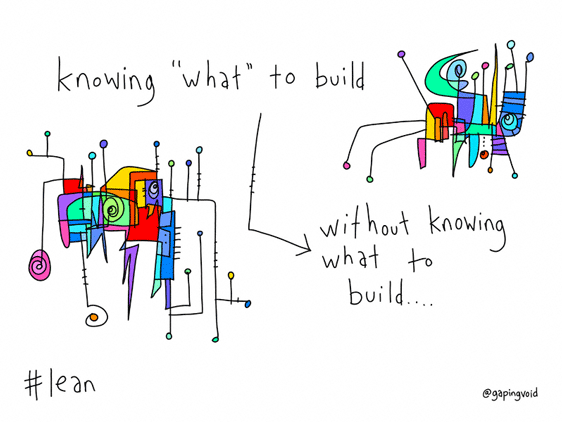 knowing "what" to build
without knowing
what to
build....
#lean
@gapingvoid